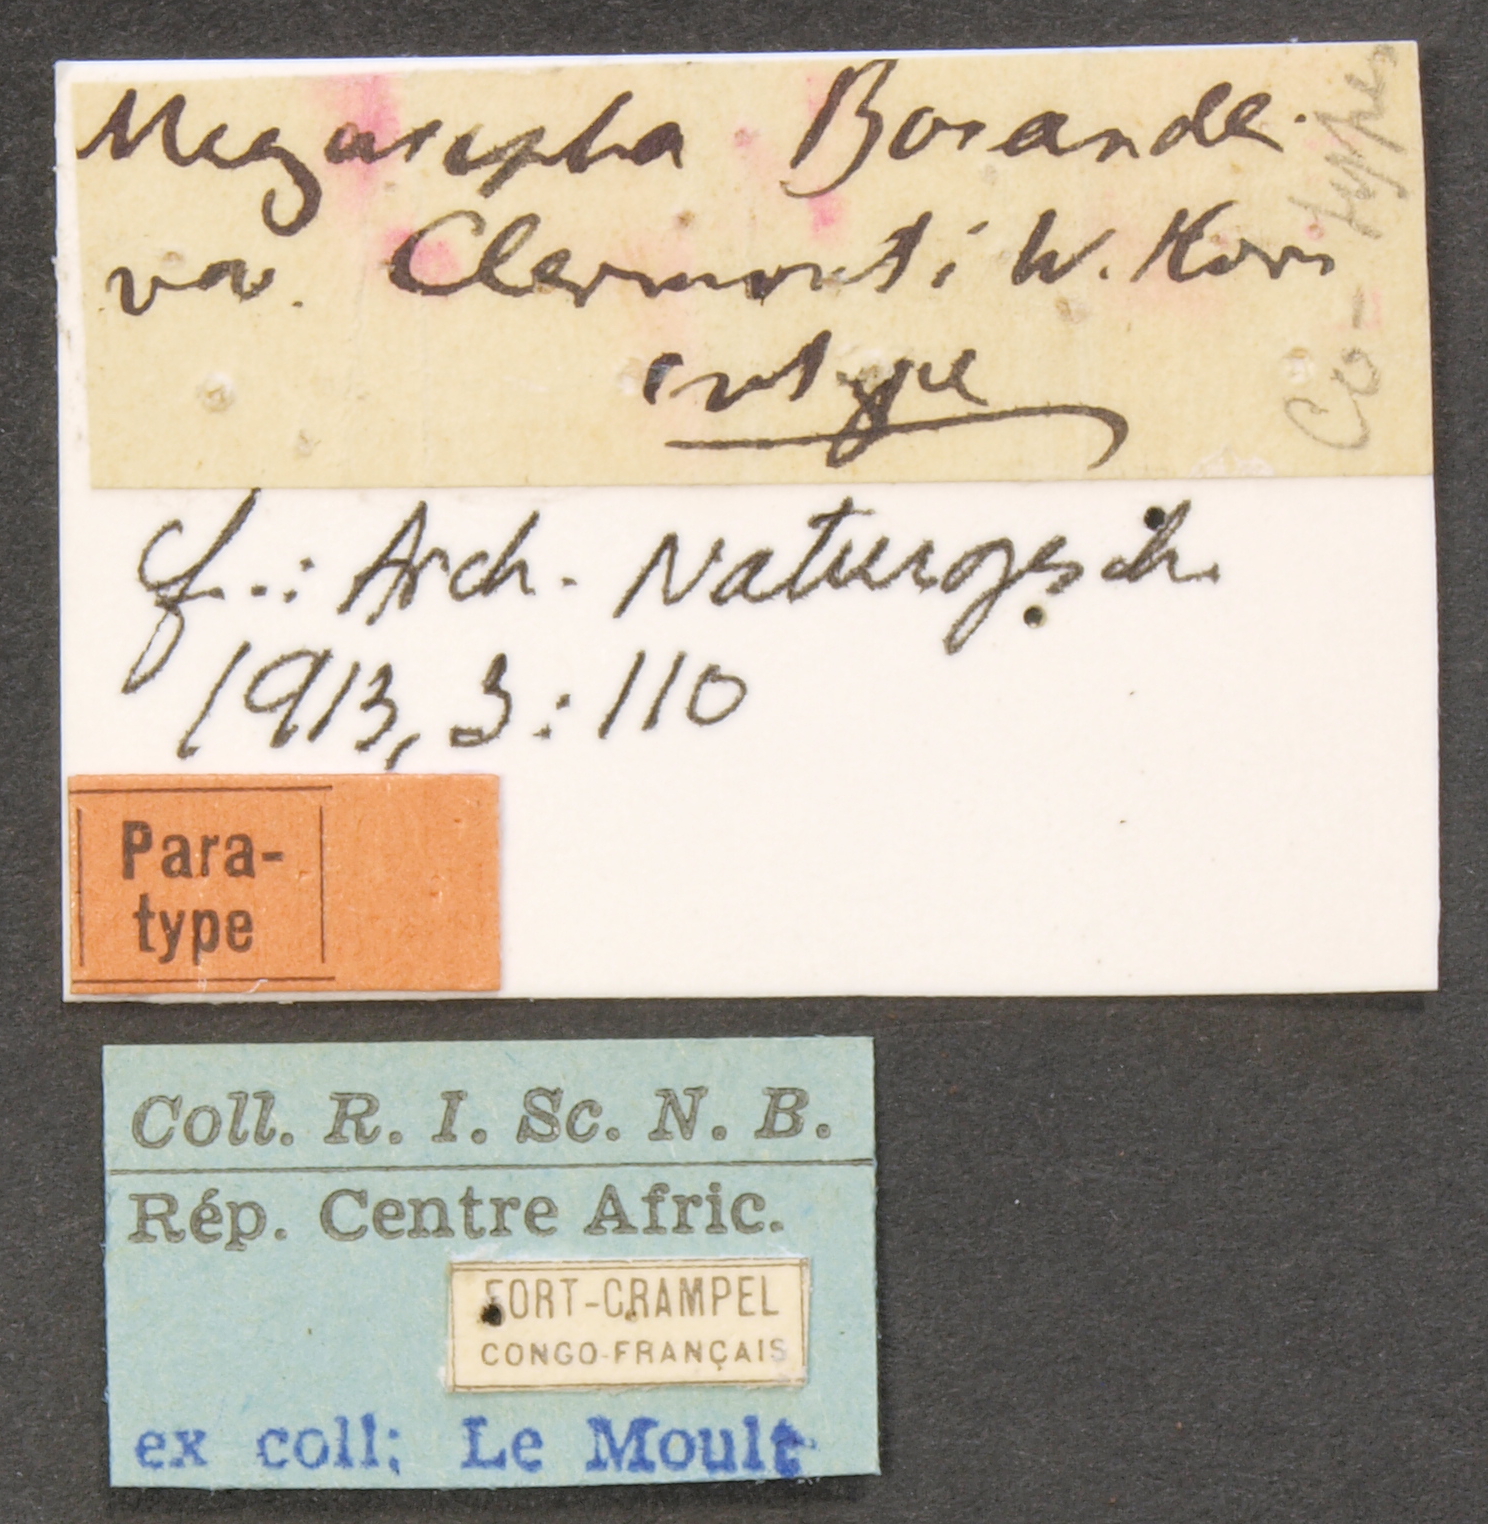 Megarespha Bosandei
var. Clermonti W. Horn
cotype
Co-types
cf.: Arch. Naturgesch.
1913, 3: 110
Para-
type
Coll. R. I. Sc. N. B.
Rép. Centre Afric.
FORT-CRAMPEL
CONGO-FRANÇAIS
ex coll; Le Moult